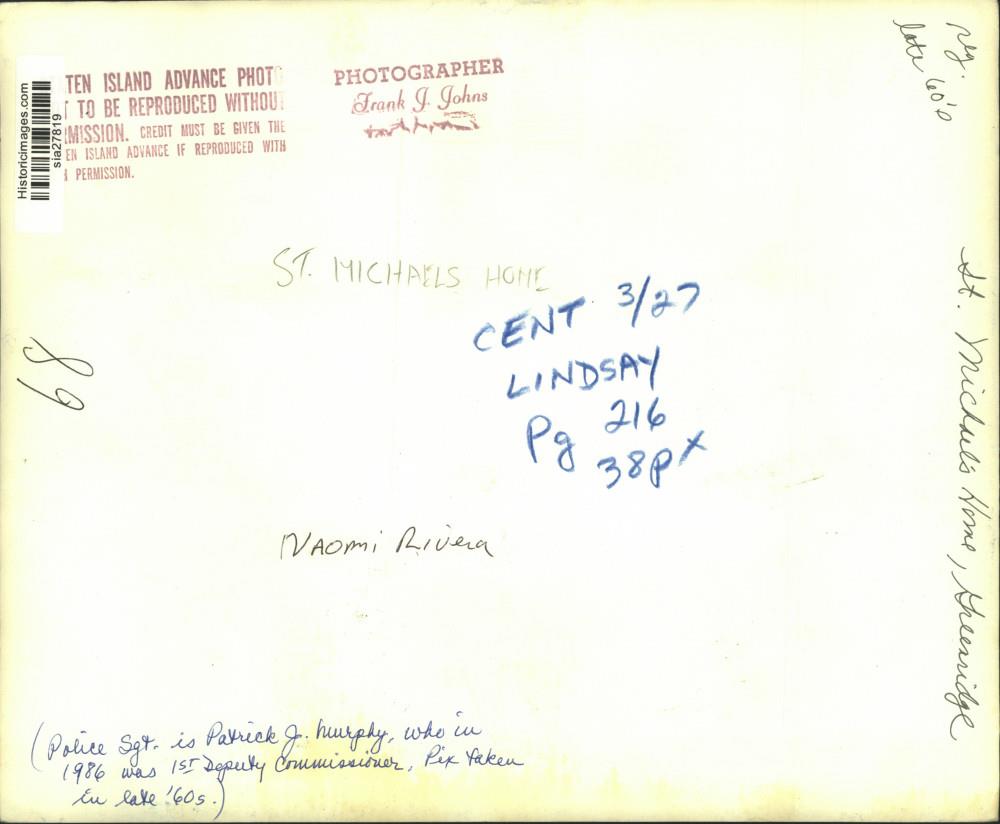 Historicimages.com
sia27819
TEN ISLAND ADVANCE PHOTO
T TO BE REPRODUCED WITHOUT
RMISSION. CREDIT MUST BE GIVEN THE
EN ISLAND ADVANCE IF REPRODUCED WITH
PERMISSION.
PHOTOGRAPHER
Frank J. Johns
late 60's
ST. MICHAELS HOME
CENT 3/27
LINDSAY
Pg 216
38p x
89
St. Michael's Home, Greenridge
Naomi Rivera
(Police Sgt. is Patrick J. Murphy, who in
1986 was 1ST Deputy Commissioner. Pix taken
in late '60s.)